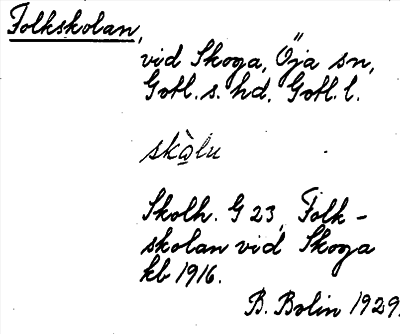 Folkskolan,
vid Skoga, Öja sn,
Gotl. s. hd. Gotl. l.
skàlu
Skolh. G 23, Folk-
skolan vid Skoga
kb 1916.
B. Bolin 1929.